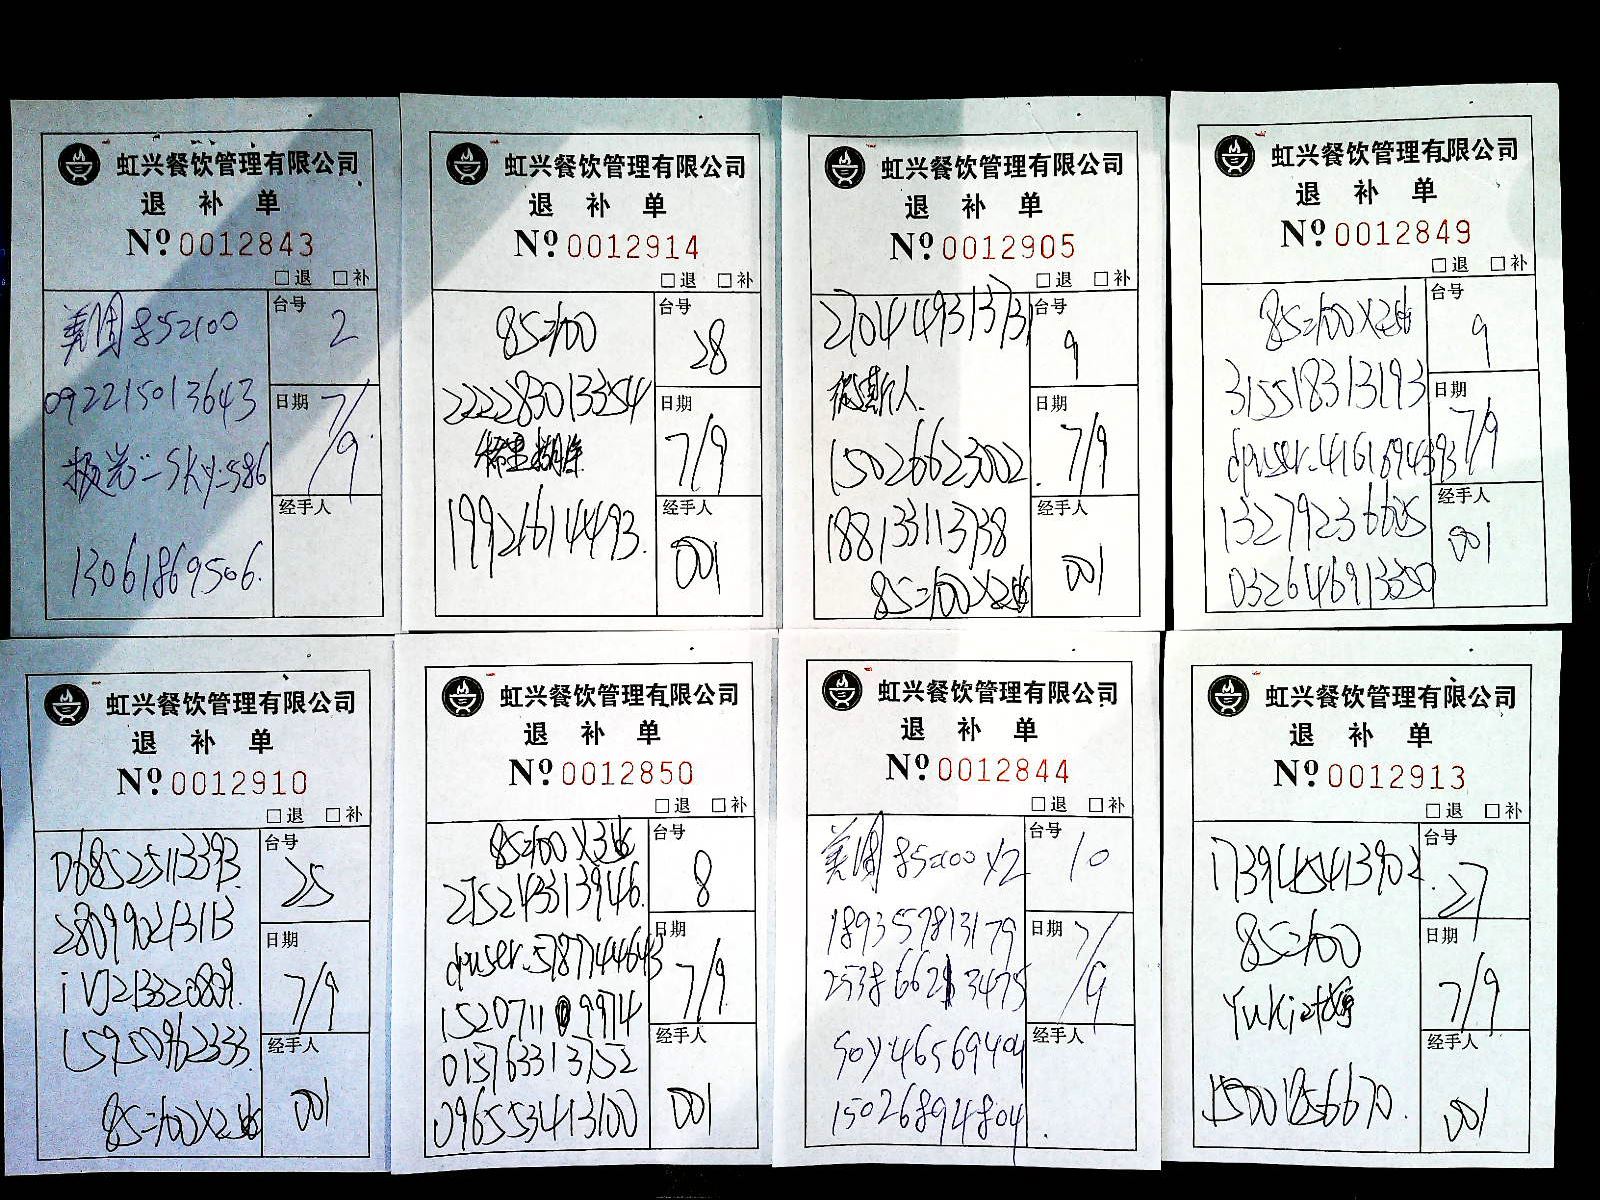 虹兴餐饮管理有限公司
退 补 单
№ 0012843
□退 □补
美团85=100
092215013643
极光-SKY-586
13061869506.
台号
2
日期
7/9
经手人
虹兴餐饮管理有限公司
退 补 单
№ 0012914
□退 □补
85=100
222283013354
稀里糊涂
19921614493.
台号
28
日期
7/9
经手人
001
虹兴餐饮管理有限公司
退 补 单
№ 0012905
□退 □补
210449313731
15026623002.
188133113738
85=100X2
台号
9
日期
7/9
经手人
001
虹兴餐饮管理有限公司
退 补 单
№ 0012849
□退 □补
85=100X2
315518313193
dpuser-4161694393
13279236665
032646913350
台号
9
日期
7/9
经手人
001
虹兴餐饮管理有限公司
退 补 单
№ 0012910
□退 □补
068525113393.
280990213113
15950962333.
85=100X2
台号
25
日期
7/9
经手人
001
虹兴餐饮管理有限公司
退 补 单
№ 0012850
□退 □补
85=100X3
215243313946.
dpuser-57877444643
1520711 9974
015763313752
096553413100
台号
8
日期
7/9
经手人
001
虹兴餐饮管理有限公司
退 补 单
№ 0012844
□退 □补
美团85=100 X2
189357813179
253866213475
soy46569404
15026894804.
台号
10
日期
7/9
经手人
虹兴餐饮管理有限公司
退 补 单
№ 0012913
□退 □补
173945413902.
85=100
Yuki
台号
27
日期
7/9
经手人
001